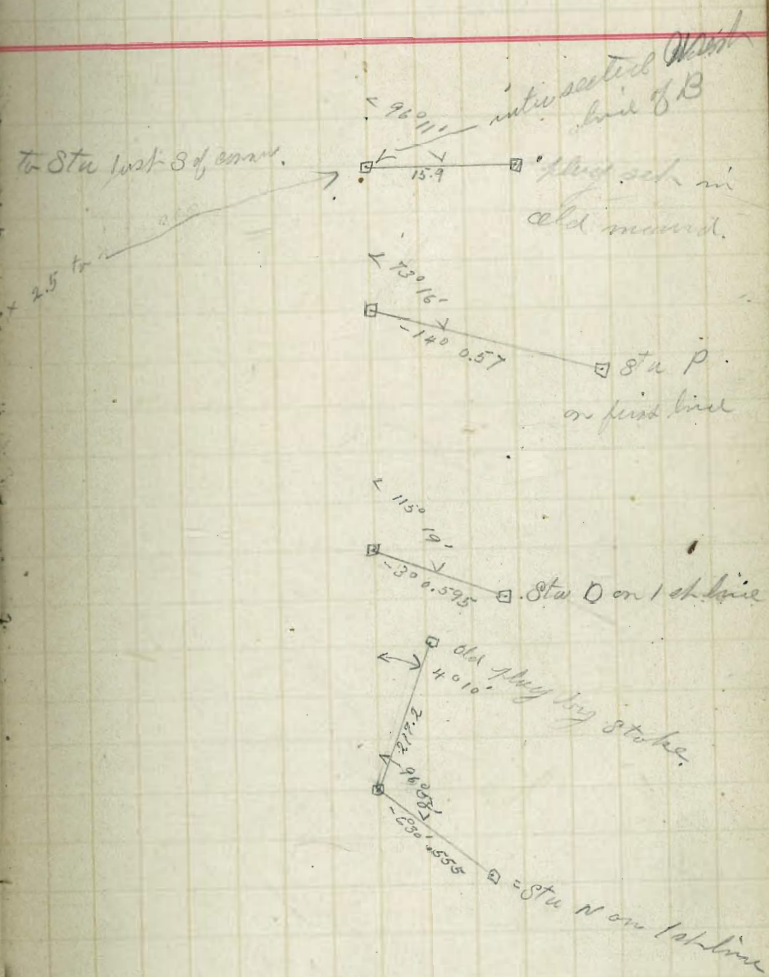 < 96° 11'
intersected
line of B
to Sta just S of
15.9
plug set in
old mound.
+ 2.5 to
< 73° 16'
-14° 0.57
Sta P.
on first line
< 115° 19'
-3° 0.595
Sta O on 1st line
Old plug by stake.
4° 10'
217.2
96°
.555
= Sta N on 1st line